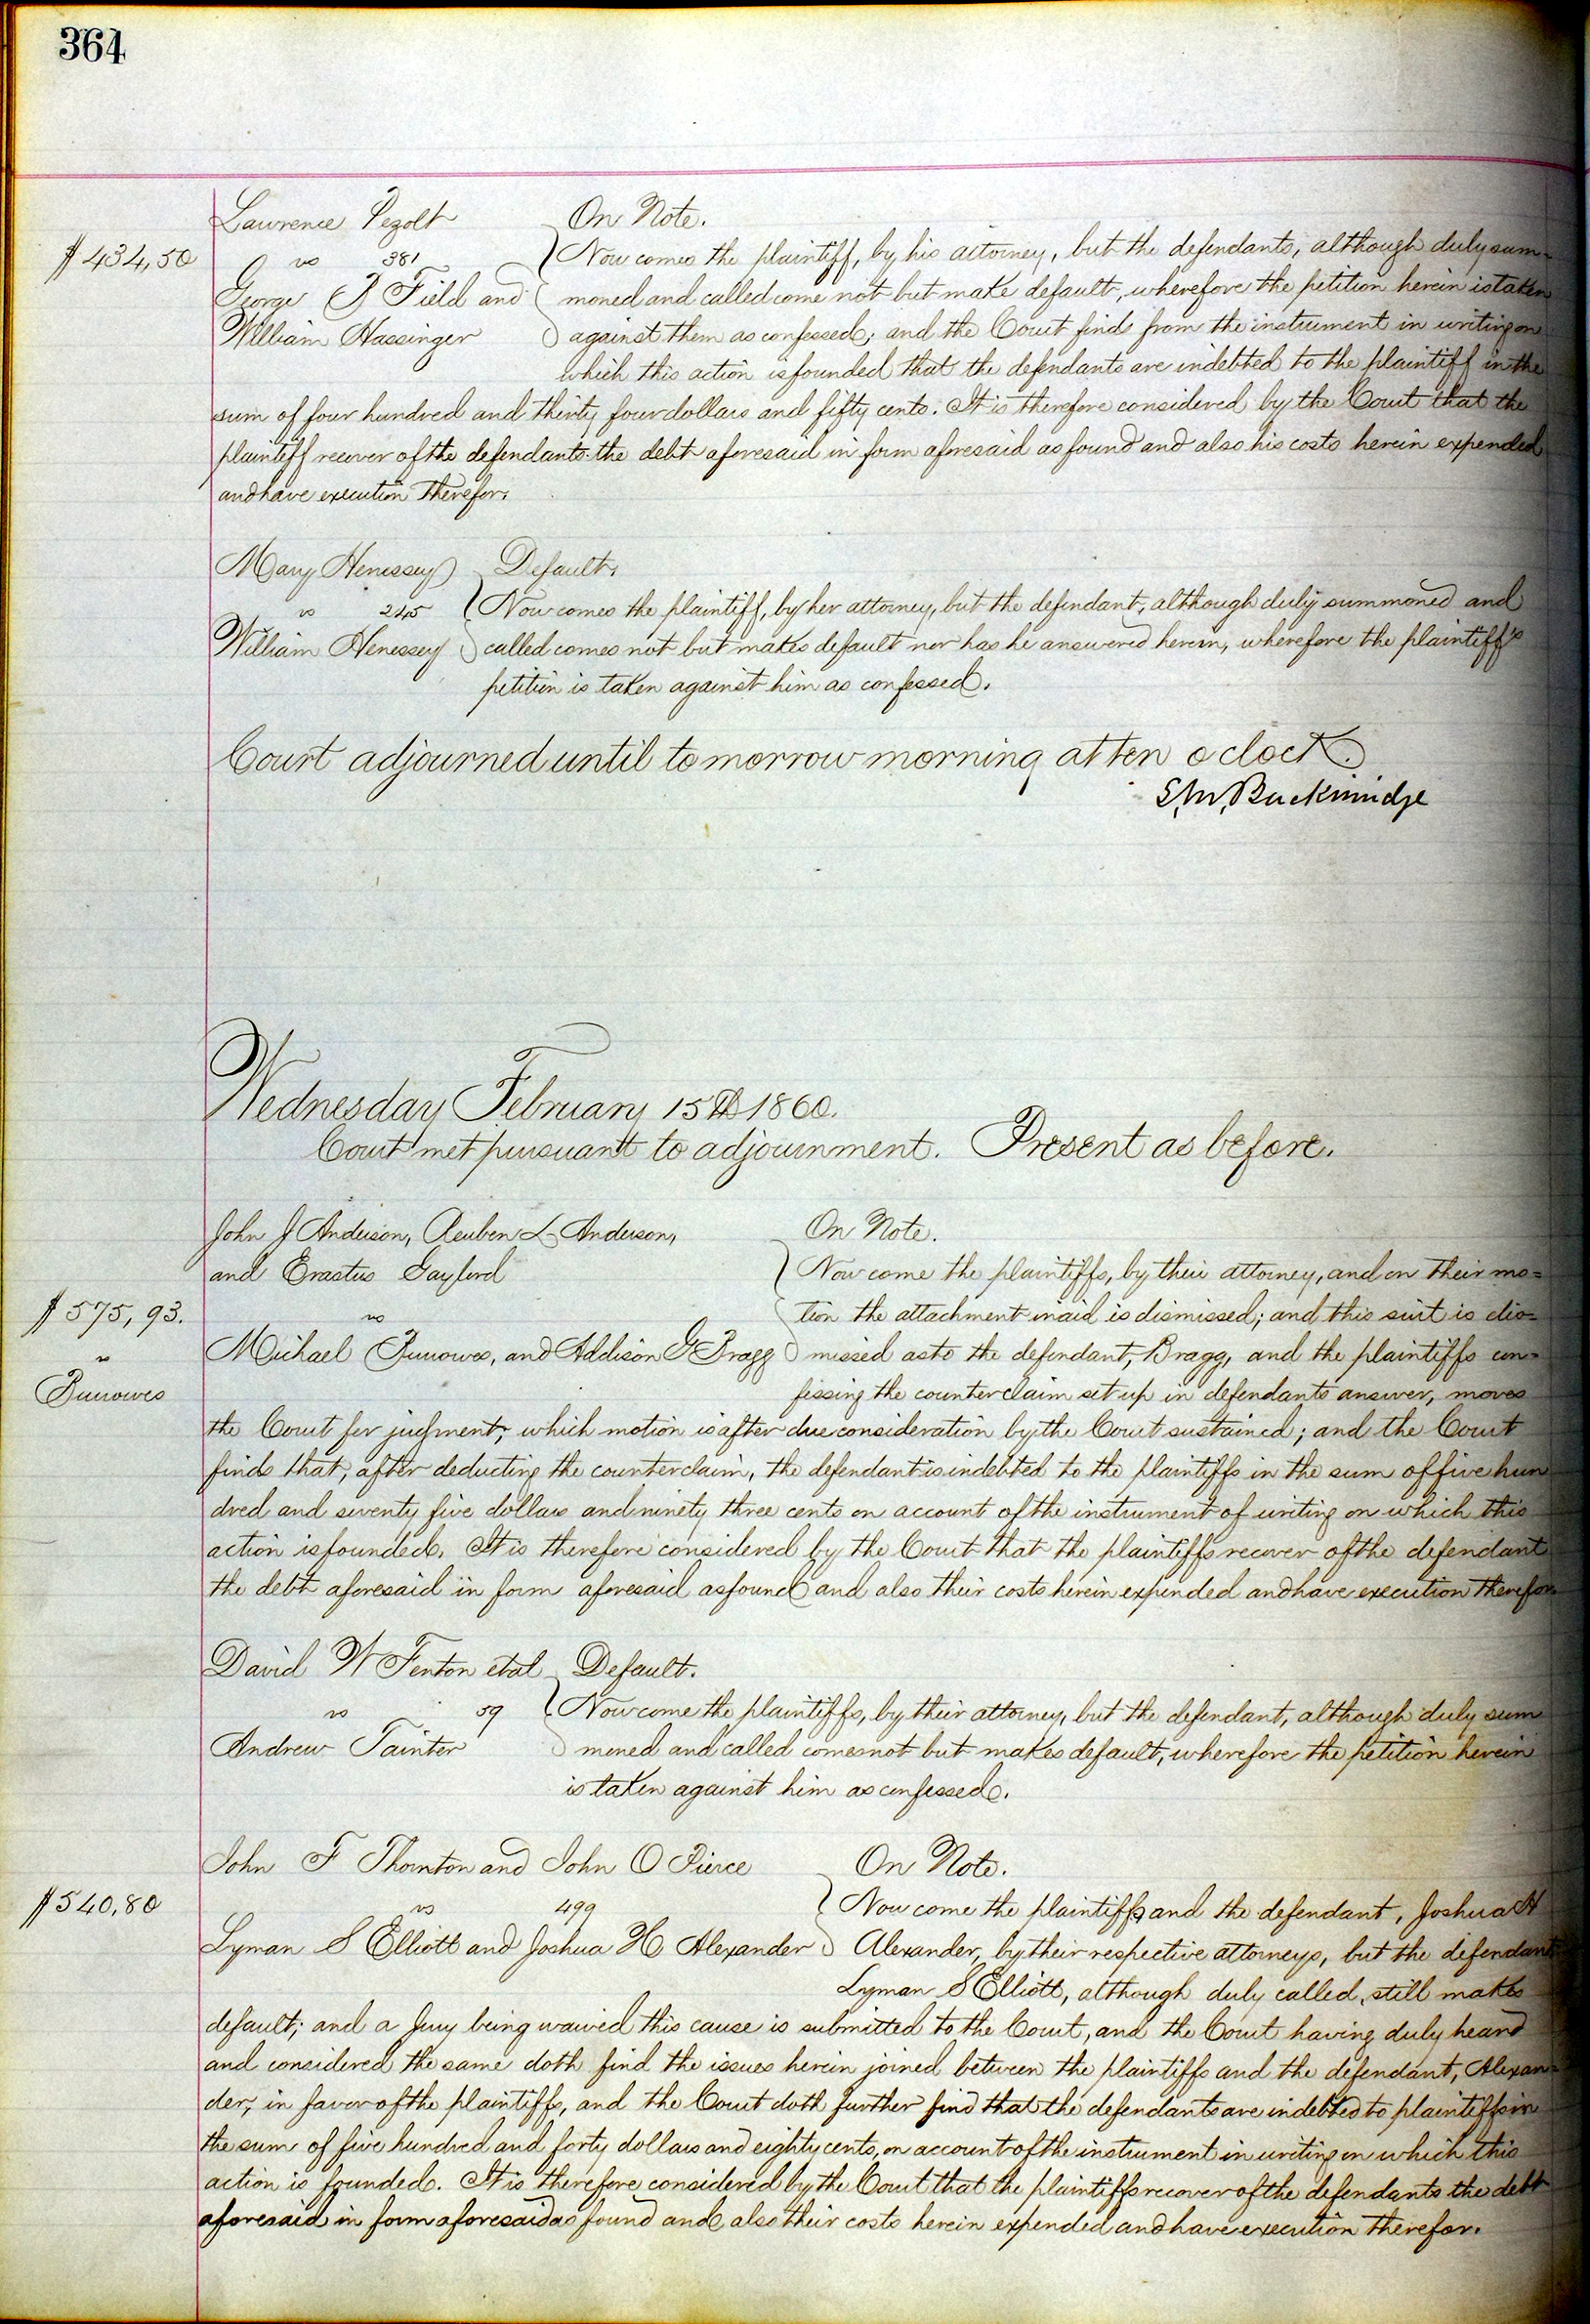 364
Lawrence Pezolt On Note.
$434,50 vs 381 Now comes the plaintiff, by his attorney, but the defendants, although duly sum-
George Field and moned and called come not but make default, wherefore the petition herein is taken
William Hassinger against them as confessed; and the Court finds from the instrument in writing on
which this action is founded that the defendants are indebted to the plaintiff in the
sum of four hundred and thirty four dollars and fifty cents. It is therefore considered by the Court that the
plaintiff recover of the defendants the debt aforesaid in form aforesaid as found and also his costs herein expended
and have execution therefor.
Mary Henessey Default.
vs 245 Now comes the plaintiff, by her attorney, but the defendant, although duly summoned and
William Henessey called comes not but makes default nor has he answered herein, wherefore the plaintiff's
petition is taken against him as confessed.
Court adjourned until tomorrow morning at ten o clock.
Wednesday February 15th 1860.
Court met pursuant to adjournment. Present as before.
John J Anderson, Reuben L Anderson, On Note.
and Erastus Gaylord Now come the plaintiffs, by their attorney, and on their mo=
$575,93. vs tion the attachment in aid is dismissed; and this suit is dis-
vs Michael Burrowes, and Addison G Bragg missed as to the defendant, Bragg, and the plaintiffs con-
Burrowes fessing the counterclaim set up in defendants answer, moves
the Court for judgment, which motion is after due consideration by the Court sustained; and the Court
finds that, after deducting the counterclaim, the defendant is indebted to the plaintiffs in the sum of five hun
dred and seventy five dollars and ninety three cents on account of the instrument of writing on which this
action is founded. It is therefore considered by the Court that the plaintiffs recover of the defendant
the debt aforesaid in form aforesaid as found and also their costs herein expended and have execution therefor.
David W Fenton et al Default.
vs 59 Now come the plaintiffs, by their attorney, but the defendant, although duly sum
Andrew Tainter moned and called comes not but makes default, wherefore the petition herein
is taken against him as confessed.
John F Thornton and John O Pierce On Note.
$540,80 vs 499 Now come the plaintiffs and the defendant, Joshua H
Lyman S Elliott and Joshua H Alexander Alexander, by their respective attorneys, but the defendant
Lyman S Elliott, although duly called, still makes
default; and a Jury being waived this cause is submitted to the Court, and the Court having duly heard
and considered the same doth find the issues herein joined between the plaintiffs and the defendant, Alexan-
der, in favor of the plaintiffs, and the Court doth further find that the defendants are indebted to plaintiffs in
the sum of five hundred and forty dollars and eighty cents, on account of the instrument in writing on which this
action is founded. It is therefore considered by the Court that the plaintiffs recover of the defendants the debt
aforesaid in form aforesaid as found and also their costs herein expended and have execution therefor.